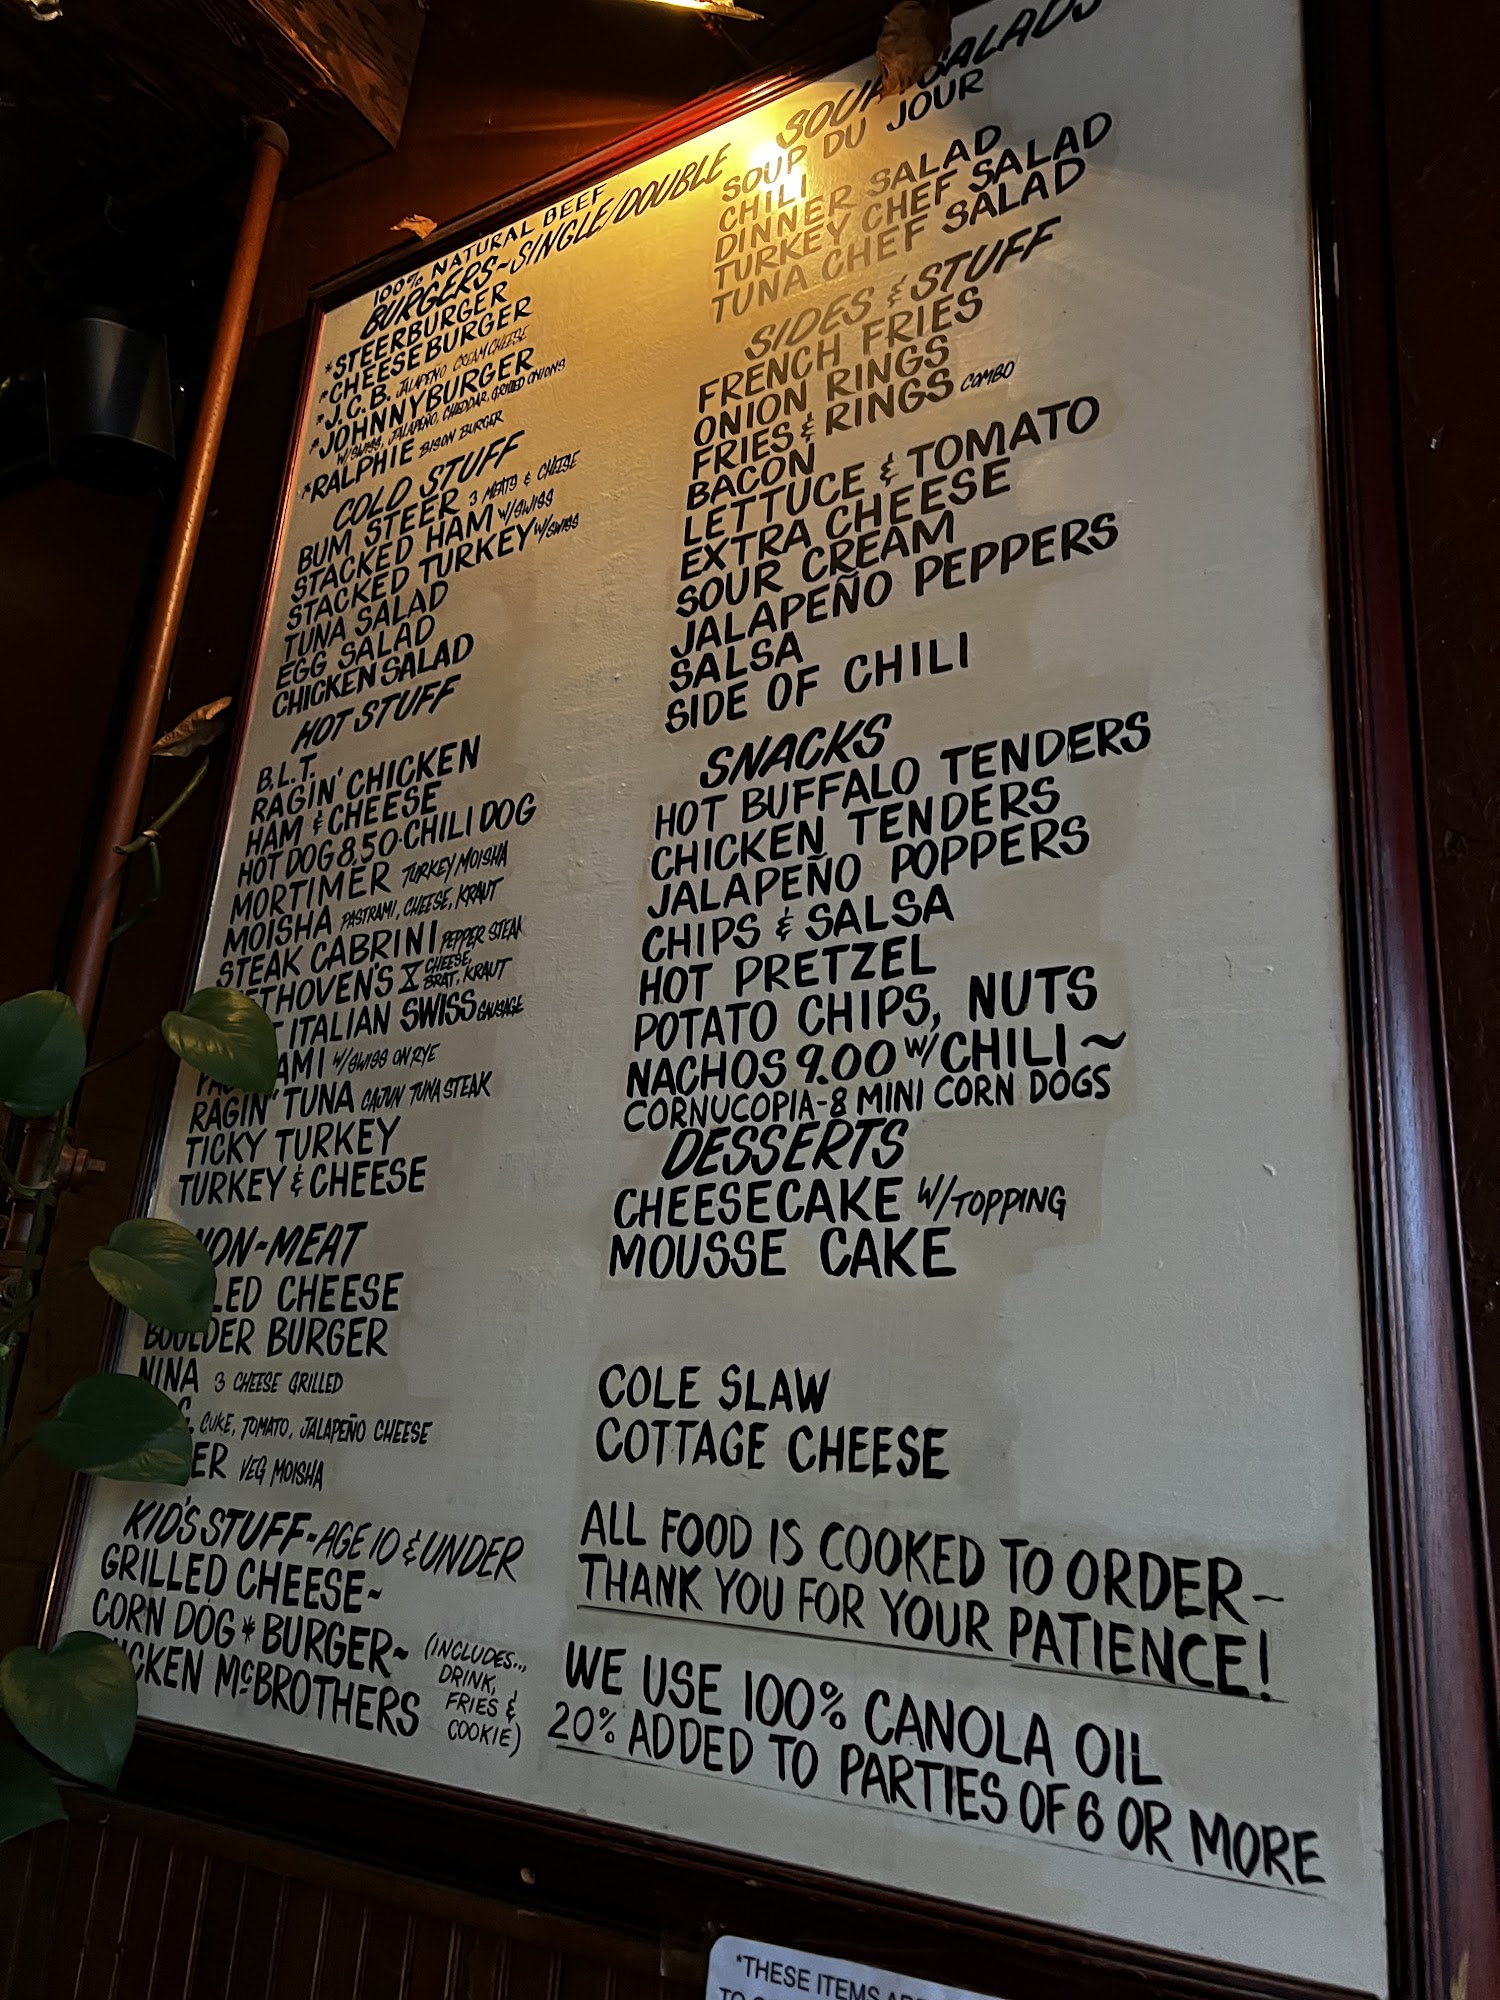 100% NATURAL BEEF
BURGERS~SINGLE/DOUBLE
*STEERBURGER
*CHEESEBURGER
*J.C.B. JALAPEÑO CREAM CHEESE
*JOHNNYBURGER
W/SWISS, JALAPEÑO, CHEDDAR, GRILLED ONIONS
*RALPHIE BISON BURGER
COLD STUFF
BUM STEER 3 MEATS & CHEESE
STACKED HAM W/SWISS
STACKED TURKEY W/SWISS
TUNA SALAD
EGG SALAD
CHICKEN SALAD
HOT STUFF
B.L.T.
RAGIN' CHICKEN
HAM & CHEESE
HOT DOG 8.50·CHILI DOG
MORTIMER TURKEY MOISHA
MOISHA PASTRAMI, CHEESE, KRAUT
STEAK CABRINI PEPPER STEAK
THOVEN'S X CHEESE, BRAT, KRAUT
ITALIAN SWISS SAUSAGE
AMI W/SWISS ON RYE
RAGIN' TUNA CAJUN TUNA STEAK
TICKY TURKEY
TURKEY & CHEESE
NON-MEAT
LED CHEESE
BOULDER BURGER
NINA 3 CHEESE GRILLED
CUKE, TOMATO, JALAPEÑO CHEESE
ER VEG MOISHA
KID'S STUFF-AGE 10 & UNDER
GRILLED CHEESE~
CORN DOG * BURGER~
CKEN McBROTHERS
(INCLUDES...
DRINK,
FRIES &
COOKIE)
SOUP SALADS
SOUP DU JOUR
CHILI
DINNER SALAD
TURKEY CHEF SALAD
TUNA CHEF SALAD
SIDES & STUFF
FRENCH FRIES
ONION RINGS
FRIES & RINGS COMBO
BACON
LETTUCE & TOMATO
EXTRA CHEESE
SOUR CREAM
JALAPEÑO PEPPERS
SALSA
SIDE OF CHILI
SNACKS
HOT BUFFALO TENDERS
CHICKEN TENDERS
JALAPEÑO POPPERS
CHIPS & SALSA
HOT PRETZEL
POTATO CHIPS, NUTS
NACHOS 9.00 W/CHILI~
CORNUCOPIA-8 MINI CORN DOGS
DESSERTS
CHEESECAKE W/TOPPING
MOUSSE CAKE
COLE SLAW
COTTAGE CHEESE
ALL FOOD IS COOKED TO ORDER~
THANK YOU FOR YOUR PATIENCE!
WE USE 100% CANOLA OIL
20% ADDED TO PARTIES OF 6 OR MORE
*THESE ITEMS